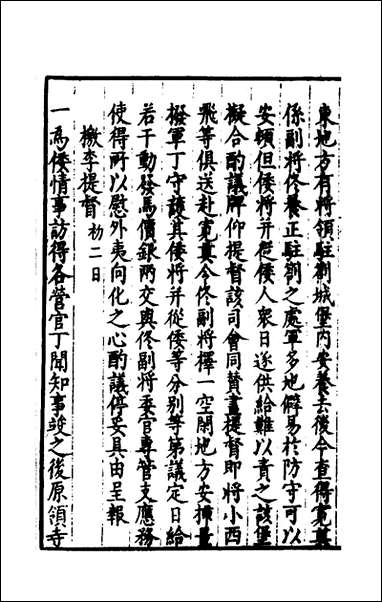 東地方有將領駐劄城堡內安養去後今查得寬奠
係副將佟養正駐劄之處軍多地僻易於防守可以
安頓但倭將并從倭人衆日逐供給難以責之該堡
擬合酌議牌仰提督該司會同贊畫提督即將小西
飛等俱送赴寬奠令佟副將擇一空閑地方安插量
撥軍丁守護其倭將并從倭等分別等第議定日給
若干動發馬價銀兩交與佟副將委官專管支應務
使得所以慰外夷向化之心酌議停妥具由呈報
檄李提督 初二日
一爲倭情事訪得各營官丁聞知事竣之後原領寺